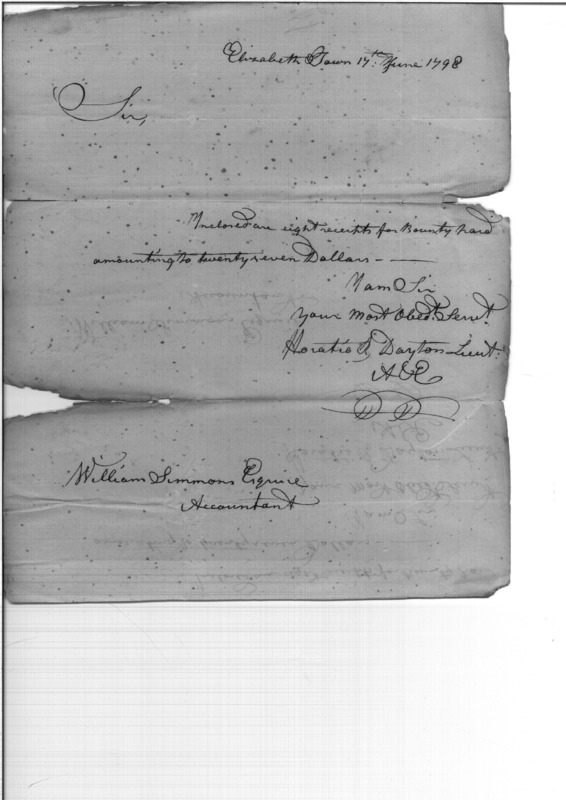 Elizabeth Town 17th. June 1798
Sir,
Inclosed are eight receipts for Bounty paid
amounting to twenty seven Dollars - —
I am Sir
your most Obedt. Servt.
Horatio R Dayton Lieut:
A&E
William Simmons Esquire
Accountant